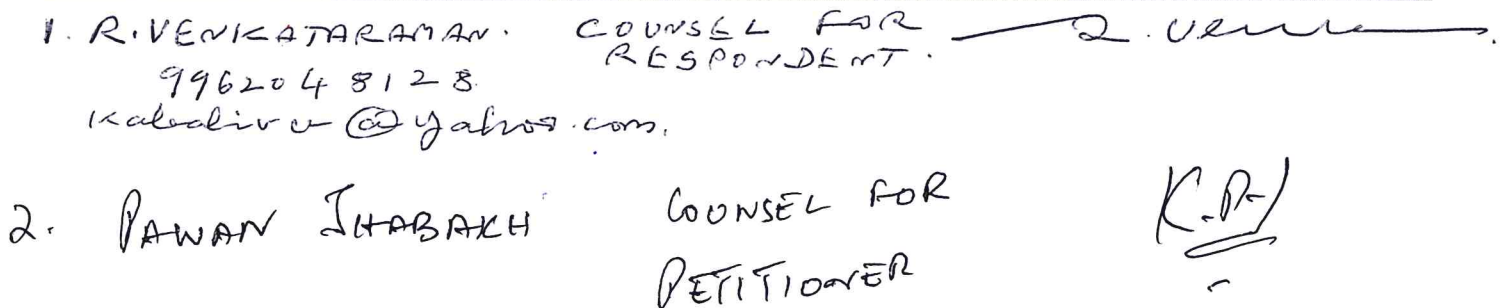 1. R. VENKATARAMAN. COUNSEL FOR RESPONDENT. R. Ven
9962048128
@yahoo.com.
2. PAWAN JHABAKH COUNSEL FOR PETITIONER K.P.J